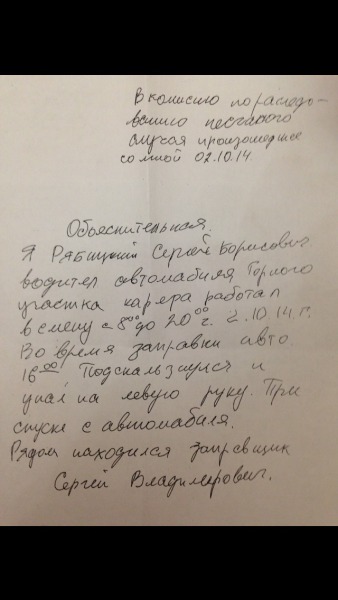 В комисию по раследо-
ванию несчасного
случая произошедшее
со мной 02.10.14.
Объяснительная.
Я Рябицкий Сергей Борисович
водител автомабиля Горного
участка карера работал
в смену с 8⁰⁰ до 20⁰⁰ч. 2.10.14 г.
Во время заправки авто.
16⁰⁰ Подскальзнулся и
упал на левую руку. При
спуске с автомабиля.
Рядом находился заправщик
Сергей Владимерович.